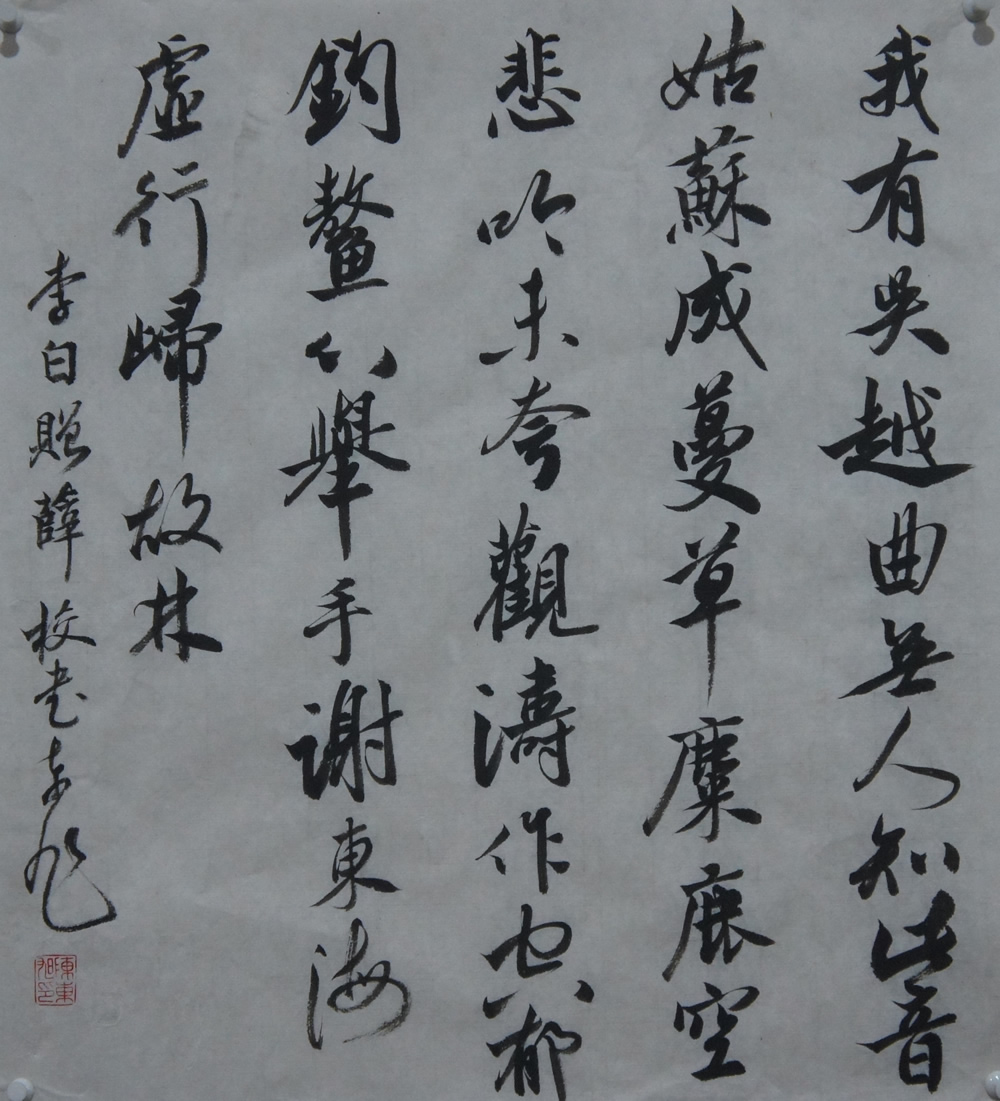 我有吳越曲無人知此音
姑蘇成蔓草麋鹿空
悲吟未夸觀濤作空郁
釣鳌心舉手謝東海
虛行歸故林
李白贈薛校書东旭
陳東旭印